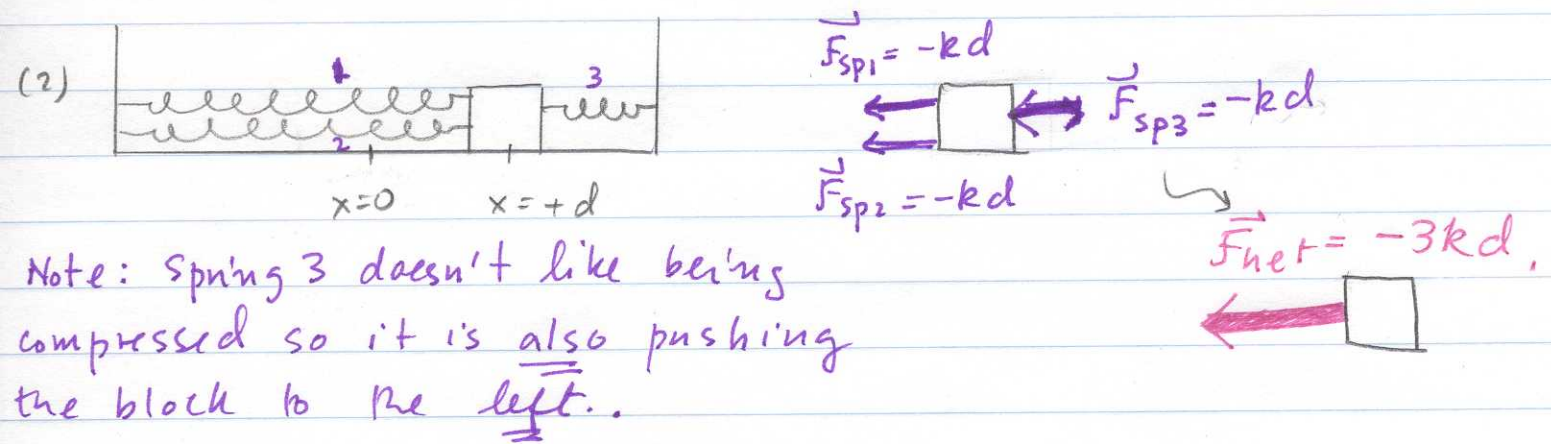 (2)
1
3
2
x=0
x=+d
F⃗sp1 = -kd
F⃗sp3 = -kd
F⃗sp2 = -kd
F⃗net = -3kd.
Note: Spring 3 doesn't like being
compressed so it is also pushing
the block to the left..